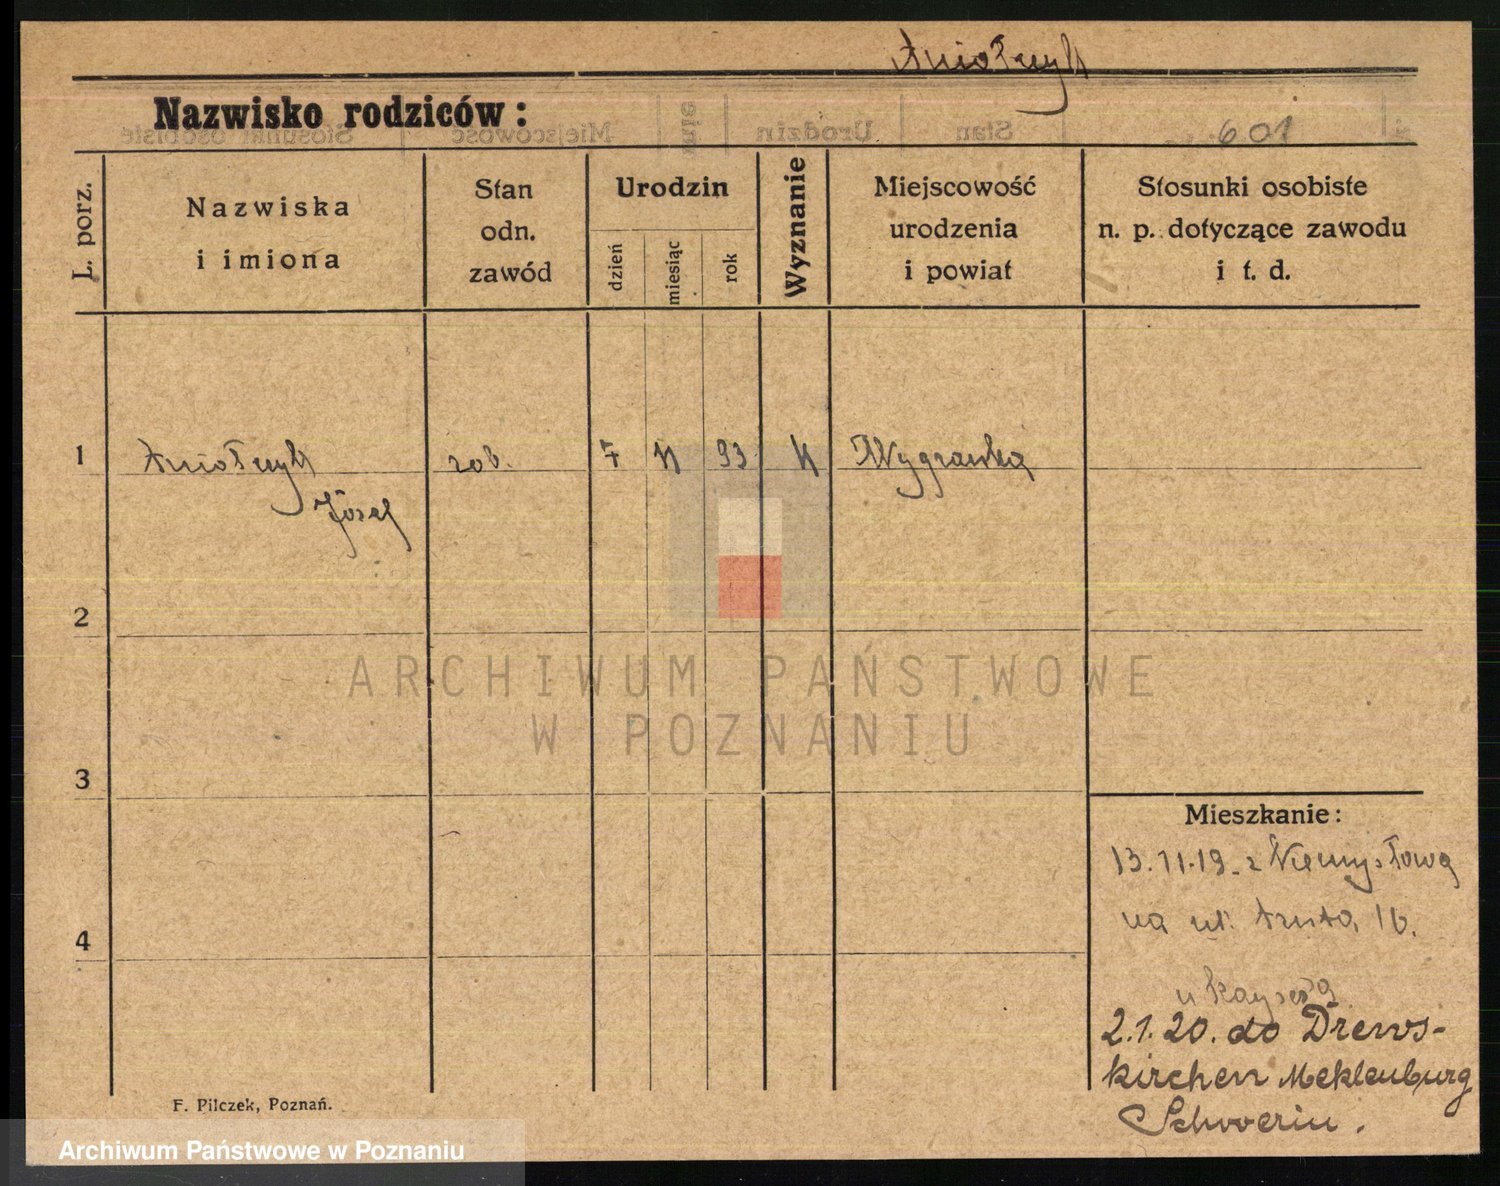 Aniołczyk
Nazwisko rodziców:
601
L. porz.
Nazwiska
i imiona
Stan
odn.
zawód
Urodzin
dzień
miesiąc
rok
Wyznanie
Miejscowość
urodzenia
i powiat
Stosunki osobiste
n. p. dotyczące zawodu
i t. d.
1 Aniołczyk rob. 7 11 93 K Wygranka
Józef
2
ARCHIWUM PAŃSTWOWE
W POZNANIU
3
Mieszkanie:
13.11.19. z
na ul. 16.
4
u
2.1.20. do Drews-
kirchen Meklenburg
Schwerin.
F. Pilczek, Poznań.
Archiwum Państwowe w Poznaniu